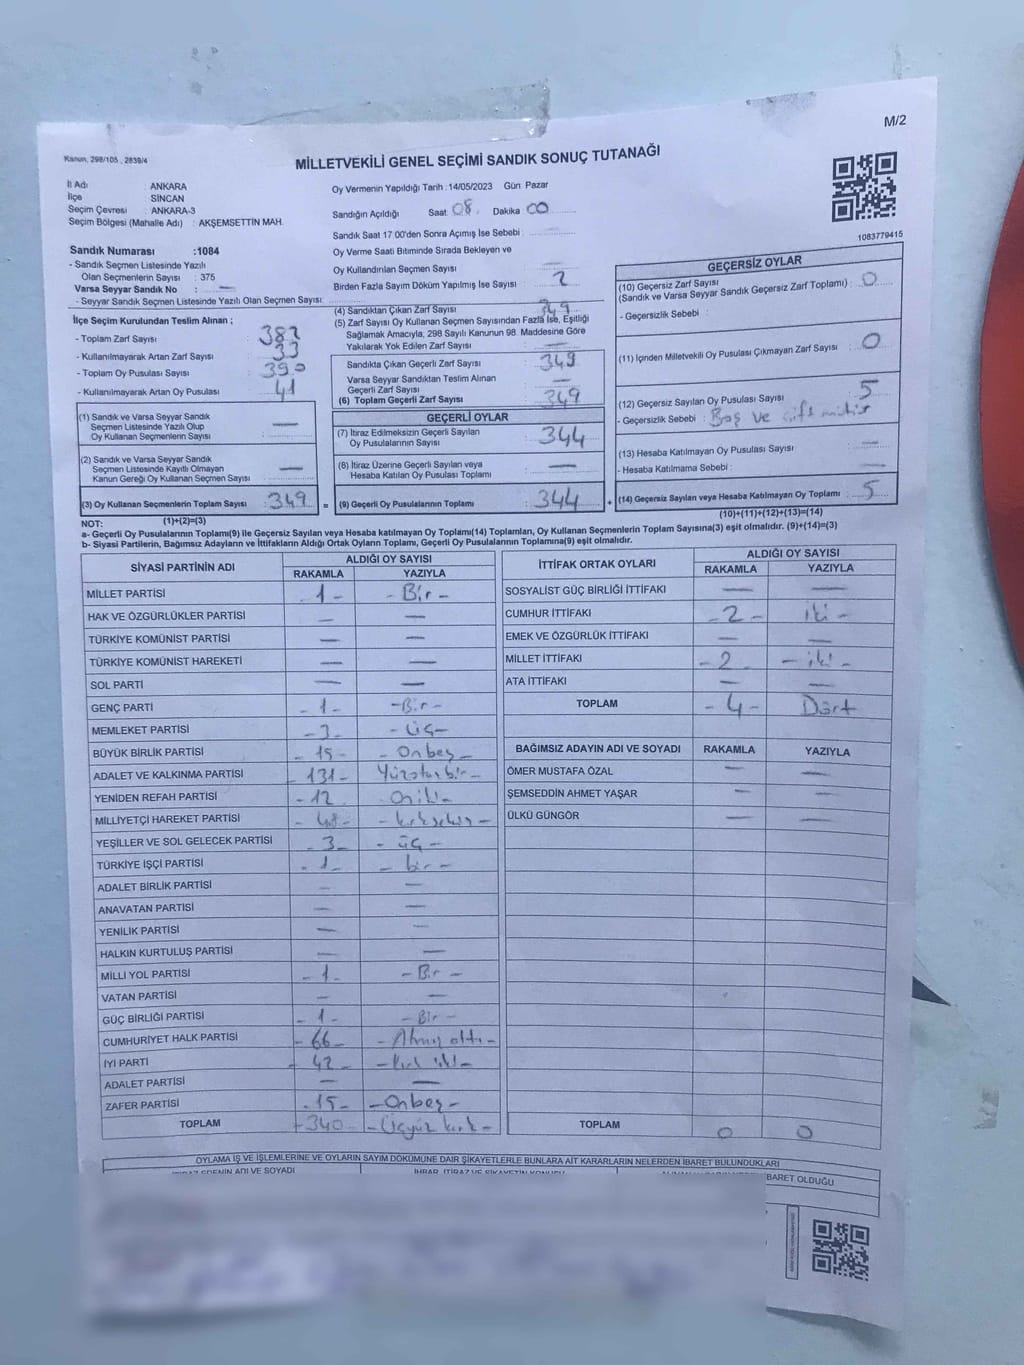 M/2
Kanun, 298/105 , 2839/4
MİLLETVEKİLİ GENEL SEÇİMİ SANDIK SONUÇ TUTANAĞI
İl Adı : ANKARA
İlçe : SİNCAN
Seçim Çevresi : ANKARA-3
Seçim Bölgesi (Mahalle Adı) : AKŞEMSETTİN MAH.
Oy Vermenin Yapıldığı Tarih : 14/05/2023 Gün Pazar
Sandığın Açıldığı Saat 08. Dakika 00
Sandık Saat 17:00'den Sonra Açımış İse Sebebi :
Oy Verme Saati Bitiminde Sırada Bekleyen ve
Oy Kullandırılan Seçmen Sayısı —
Birden Fazla Sayım Döküm Yapılmış İse Sayısı 2
1083779415
Sandık Numarası :1084
- Sandık Seçmen Listesinde Yazılı
Olan Seçmenlerin Sayısı : 375
Varsa Seyyar Sandık No : —
- Seyyar Sandık Seçmen Listesinde Yazılı Olan Seçmen Sayısı:
İlçe Seçim Kurulundan Teslim Alınan ;
- Toplam Zarf Sayısı 382
- Kullanılmayarak Artan Zarf Sayısı 33
- Toplam Oy Pusulası Sayısı 390
- Kullanılmayarak Artan Oy Pusulası 41
(1) Sandık ve Varsa Seyyar Sandık
Seçmen Listesinde Yazılı Olup
Oy Kullanan Seçmenlerin Sayısı —
(2) Sandık ve Varsa Seyyar Sandık
Seçmen Listesinde Kayıtlı Olmayan
Kanun Gereği Oy Kullanan Seçmen Sayısı —
(3) Oy Kullanan Seçmenlerin Toplam Sayısı 349 =
(4) Sandıktan Çıkan Zarf Sayısı 349
(5) Zarf Sayısı Oy Kullanan Seçmen Sayısından Fazla İse, Eşitliği
Sağlamak Amacıyla, 298 Sayılı Kanunun 98. Maddesine Göre
Yakılarak Yok Edilen Zarf Sayısı —
Sandıkta Çıkan Geçerli Zarf Sayısı 349
Varsa Seyyar Sandıktan Teslim Alınan
Geçerli Zarf Sayısı —
(6) Toplam Geçerli Zarf Sayısı 349
GEÇERLİ OYLAR
(7) İtiraz Edilmeksizin Geçerli Sayılan
Oy Pusulalarının Sayısı 344
(8) İtiraz Üzerine Geçerli Sayılan veya
Hesaba Katılan Oy Pusulaları Toplamı —
(9) Geçerli Oy Pusulalarının Toplamı 344 +
GEÇERSİZ OYLAR
(10) Geçersiz Zarf Sayısı
(Sandık ve Varsa Seyyar Sandık Geçersiz Zarf Toplamı) : 0
- Geçersizlik Sebebi :
(11) İçinden Milletvekili Oy Pusulası Çıkmayan Zarf Sayısı 0
(12) Geçersiz Sayılan Oy Pusulası Sayısı 5
- Geçersizlik Sebebi : Boş ve çift mühür
(13) Hesaba Katılmayan Oy Pusulası Sayısı —
- Hesaba Katılmama Sebebi : —
(14) Geçersiz Sayılan veya Hesaba Katılmayan Oy Toplamı 5
NOT: (1)+(2)=(3)
(10)+(11)+(12)+(13)=(14)
a- Geçerli Oy Pusulalarının Toplamı(9) ile Geçersiz Sayılan veya Hesaba katılmayan Oy Toplamı(14) Toplamları, Oy Kullanan Seçmenlerin Toplam Sayısına(3) eşit olmalıdır. (9)+(14)=(3)
b- Siyasi Partilerin, Bağımsız Adayların ve İttifakların Aldığı Ortak Oyların Toplamı, Geçerli Oy Pusulalarının Toplamına(9) eşit olmalıdır.
SİYASİ PARTİNİN ADI ALDIĞI OY SAYISI
RAKAMLA YAZIYLA
MİLLET PARTİSİ 1- - Bir -
HAK VE ÖZGÜRLÜKLER PARTİSİ — —
TÜRKİYE KOMÜNİST PARTİSİ — —
TÜRKİYE KOMÜNİST HAREKETİ — —
SOL PARTİ — —
GENÇ PARTİ - 1 - -Bir -
MEMLEKET PARTİSİ - 3 - - üç-
BÜYÜK BİRLİK PARTİSİ - 15 - - Onbeş -
ADALET VE KALKINMA PARTİSİ - 131 - Yüzotuzbir -
YENİDEN REFAH PARTİSİ - 12 Oniki-
MİLLİYETÇİ HAREKET PARTİSİ - 48 - - kırksekiz -
YEŞİLLER VE SOL GELECEK PARTİSİ - 3 - - üç -
TÜRKİYE İŞÇİ PARTİSİ - 1 - - bir -
ADALET BİRLİK PARTİSİ — —
ANAVATAN PARTİSİ — —
YENİLİK PARTİSİ — —
HALKIN KURTULUŞ PARTİSİ — —
MİLLİ YOL PARTİSİ - 1 - - Bir -
VATAN PARTİSİ — —
GÜÇ BİRLİĞİ PARTİSİ - 1 - - Bir -
CUMHURİYET HALK PARTİSİ - 66 - - Altmış altı -
İYİ PARTİ - 42 - - Kırk iki -
ADALET PARTİSİ — —
ZAFER PARTİSİ - 15 - - Onbeş -
TOPLAM - 340 - - Üçyüz kırk -
İTTİFAK ORTAK OYLARI ALDIĞI OY SAYISI
RAKAMLA YAZIYLA
SOSYALİST GÜÇ BİRLİĞİ İTTİFAKI — —
CUMHUR İTTİFAKI - 2 - iki -
EMEK VE ÖZGÜRLÜK İTTİFAKI — —
MİLLET İTTİFAKI - 2 - - iki -
ATA İTTİFAKI — —
TOPLAM - 4 - Dört
BAĞIMSIZ ADAYIN ADI VE SOYADI RAKAMLA YAZIYLA
ÖMER MUSTAFA ÖZAL — —
ŞEMSEDDİN AHMET YAŞAR — —
ÜLKÜ GÜNGÖR — —
TOPLAM 0 0
OYLAMA İŞ VE İŞLEMLERİNE VE OYLARIN SAYIM DÖKÜMÜNE DAİR ŞİKAYETLERLE BUNLARA AİT KARARLARIN NELERDEN İBARET BULUNDUKLARI
ADI VE SOYADI
BARET OLDUĞU